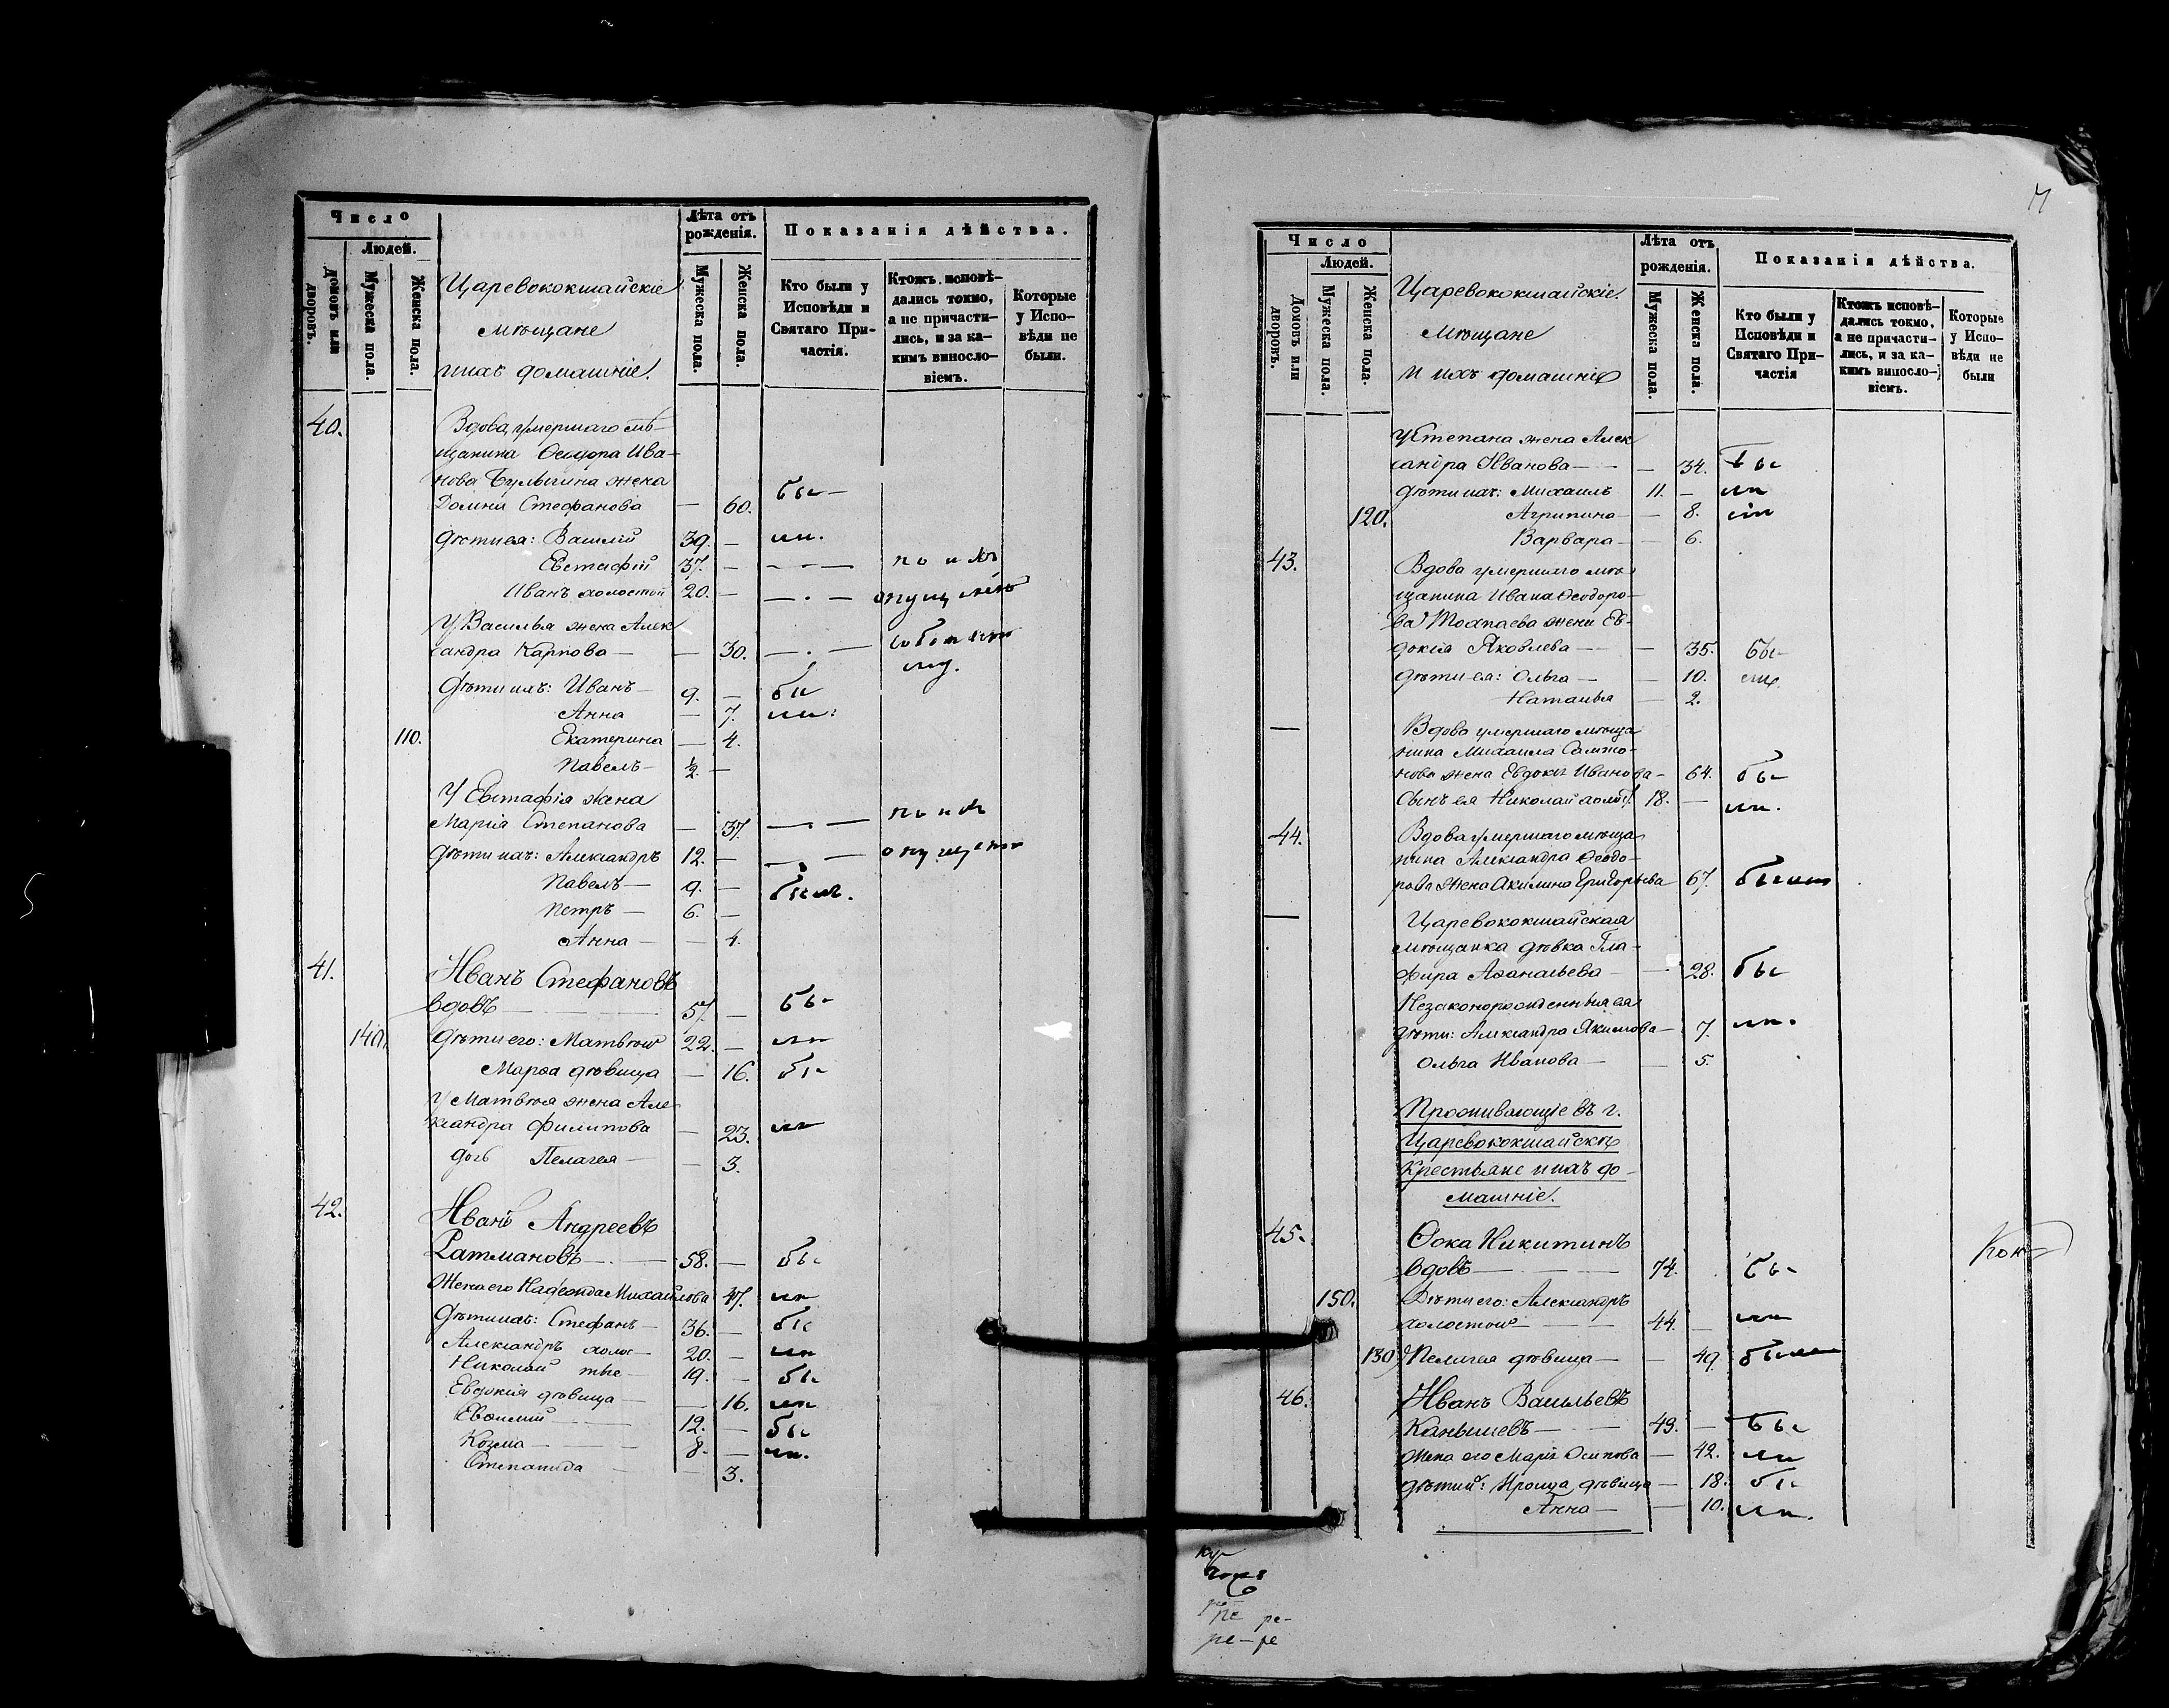 Число
Людей.
Домовъ или дворовъ.
Мужеска пола.
Женска пола.
Царевококшайскіе
мѣщане
и ихъ домашніе.
Лѣта отъ рожденія.
Мужеска пола.
Женска пола.
Показанія дѣйства.
Кто были у Исповѣди и Святаго Причастія.
Ктожъ исповѣдались токмо, а не причастились, и за какимъ винословіемъ.
Которые у Исповѣди не были.
40. Вдова умершаго мѣ-
щанина Ѳеодора Ива-
нова Булыгина жена
Домна Стефанова — 60. бы-
дѣти ея: Василій 39. — ли.
Евстафій 37. — — по
Иванъ холостой 20. — — опущенію
У Василья жена Алек
сандра Карпова — — 30. —
Дѣти ихъ: Иванъ — 9. — бы
Анна — 7. ли:
110. Екатерина — 4.
Павелъ — ½. —
У Евстафія жена
Марія Степанова — 37. — по
дѣти ихъ: Александръ 12. — — опущенію
Павелъ — 9. — былъ.
Петръ — 6. —
Анна — — 4.
41. Иванъ Стефановъ
вдовъ — 57. — бы-
140. Дѣти его: Матвѣй 22. — ли
Марѳа дѣвица — 16. бы
У Матвѣя жена Але
ксандра Филипова — 23. ли
дочь Пелагея — — 3.
42. Иванъ Андреевъ
Ратмановъ — 58. — бы
Жена его Надежда Михайлова 47. ли
Дѣти ихъ: Стефанъ — 36. — бы
Александръ холос — 20. — ли
Николай тже — 19. — бы
Евдокія дѣвица — — 16. ли
Евѳимій — 12. — бы
Козма — 8. — ли.
Степанида — — 3.
Число
Людей.
Домовъ или дворовъ.
Мужеска пола.
Женска пола.
Царевококшайскіе
мѣщане
и ихъ домашніе
Лѣта отъ рожденія.
Мужеска пола.
Женска пола.
Показанія дѣйства.
Кто были у Исповѣди и Святаго Причастія
Ктожъ исповѣдались токмо, а не причастились, и за какимъ винословіемъ.
Которые у Исповѣди не были
У Степана жена Алек
сандра Иванова — — 34. бы
Дѣти ихъ: Михаилъ 11. — ли
120. Агрипина — — 8. ли
Варвара — — 6.
43. Вдова умершаго мѣ-
щанина Ивана Ѳеодоро-
ва жена Ев-
докія Яковлева — — 35. бы-
дѣти ея: Ольга — — 10. ли.
Наталья — 2.
— Вдова умершаго мѣща
нина Михаила
нова жена Евдокія Иванова — 64. бы
Сынъ ея Николай холос. 18. — ли.
44. Вдова умершаго мѣща
нина Александра Ѳеодо-
рова жена Акилина Григорьева 67. были
— Царевококшайская
мѣщанка дѣвка Гла-
фира Аѳанасьева — — 28. бы
Незаконорожденныя ея
дѣти: Александра Якимова — 7. ли.
Ольга Иванова — — 5.
Проживающіе въ г.
Царевококшайскѣ
Крестьяне и ихъ до-
машніе.
45. Ѳока Никитинъ
вдовъ — 74. бы-
150. Дѣти его: Александръ
холостой — 44. — ли
130. Пелагея дѣвица — — 49. были
46. Иванъ Васильевъ
Канышевъ — 43. — бы
Жена его Марія Осипова — 42. ли
дѣти ихъ: Ироида дѣвица — 18. бы
Анна — — 10. ли.
ре-ре